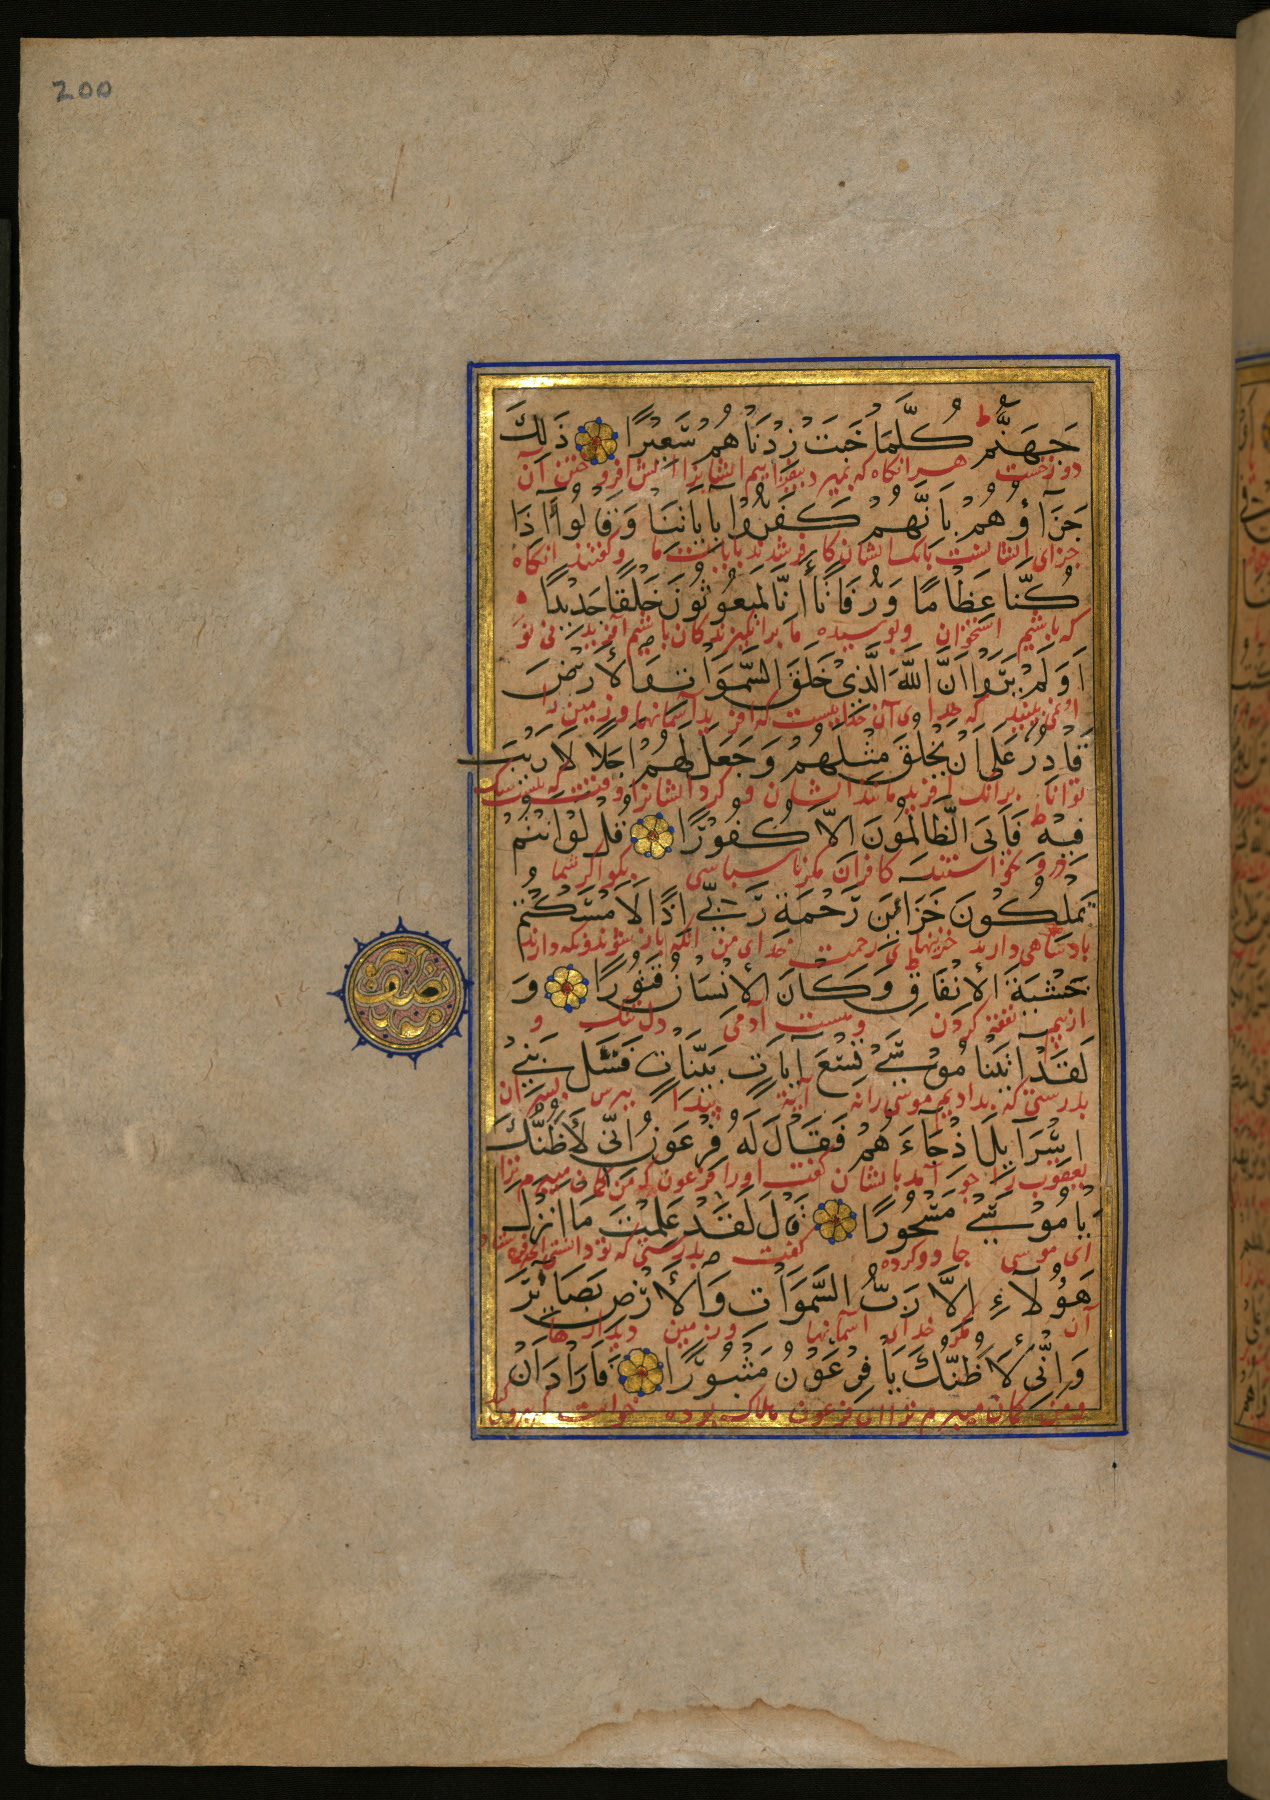 200
جَهَنَّمُ كُلَّمَا خَبَتْ زِدْنَاهُمْ سَعِيْرًا ذَلِكَ
دوزخست هر انکاه که بمیرد بیفزاییم ایشانرا آتش افروختن آن
جَزَآؤُهُمْ بِاَنَّهُمْ كَفَرُوْا بِآيَاتِنَا وَقَالُوْا أَاِذَا
جزای ایشانست بانک ایشان کافر شدند بایات ما و گفتند انکاه
كُنَّا عِظَامًا وَرُفَاتًا أَاِنَّا لَمَبْعُوْثُوْنَ خَلْقًا جَدِيْدًا
که باشیم استخوان و بوسیده ما برانکیزندکان باشیم آفریدنی نو
اَوَلَمْ يَرَوْا اَنَّ اللَّهَ الَّذِيْ خَلَقَ السَّمَوَاتِ وَالْاَرْضَ
او نمی بینند که خدای آن خداییست که آفرید آسمانها و زمین را
قَادِرٌ عَلَى اَنْ يَخْلُقَ مِثْلَهُمْ وَجَعَلَ لَهُمْ اَجَلًا لَا رَيْبَ
توانا برانک آفریند مانند ایشان و کرد ایشانرا وقتی که نیست شک
فِيْهِ فَاَبَى الظَّالِمُوْنَ اِلَّا كُفُوْرًا قُلْ لَوْ اَنْتُمْ
درو نخواستند کافران مکر ناسپاسی بکو اکر شما
تَمْلِكُوْنَ خَزَائِنَ رَحْمَةِ رَبِّيْ اِذًا لَاَمْسَكْتُمْ
پادشاهی دارید خزینهای رحمت خدای من انکه
خَشْيَةَ الْاِنْفَاقِ وَكَانَ الْاِنْسَانُ قَتُوْرًا وَ
از بیم نفقه کردن و هست آدمی دل تنک و
لَقَدْ آتَيْنَا مُوْسَى تِسْعَ آيَاتٍ بَيِّنَاتٍ فَسْئَلْ بَنِيْ
بدرستی که بدادیم موسی را نه آیة پیدا بپرس پسران
اِسْرَآيِلَ اِذْ جَآءَهُمْ فَقَالَ لَهُ فِرْعَوْنُ اِنِّي لَاَظُنُّكَ
یعقوب را چو آمد بایشان کفت او را فرعون که من کمان میبرم ترا
يَا مُوْسَى مَسْحُوْرًا قَالَ لَقَدْ عَلِمْتَ مَا اَنْزَلَ
ای موسی جادو کرده کفت بدرستی که تو دانستی
هَؤُلَآءِ اِلَّا رَبُّ السَّمَوَاتِ وَالْاَرْضِ بَصَائِرَ
آن مکر خدای آسمانها و زمین دیدارها
وَاِنِّيْ لَاَظُنُّكَ يَا فِرْعَوْنُ مَثْبُوْرًا فَاَرَادَ اَنْ
و من کمان میبرم ترا ای فرعون هلاک خواست
نصف